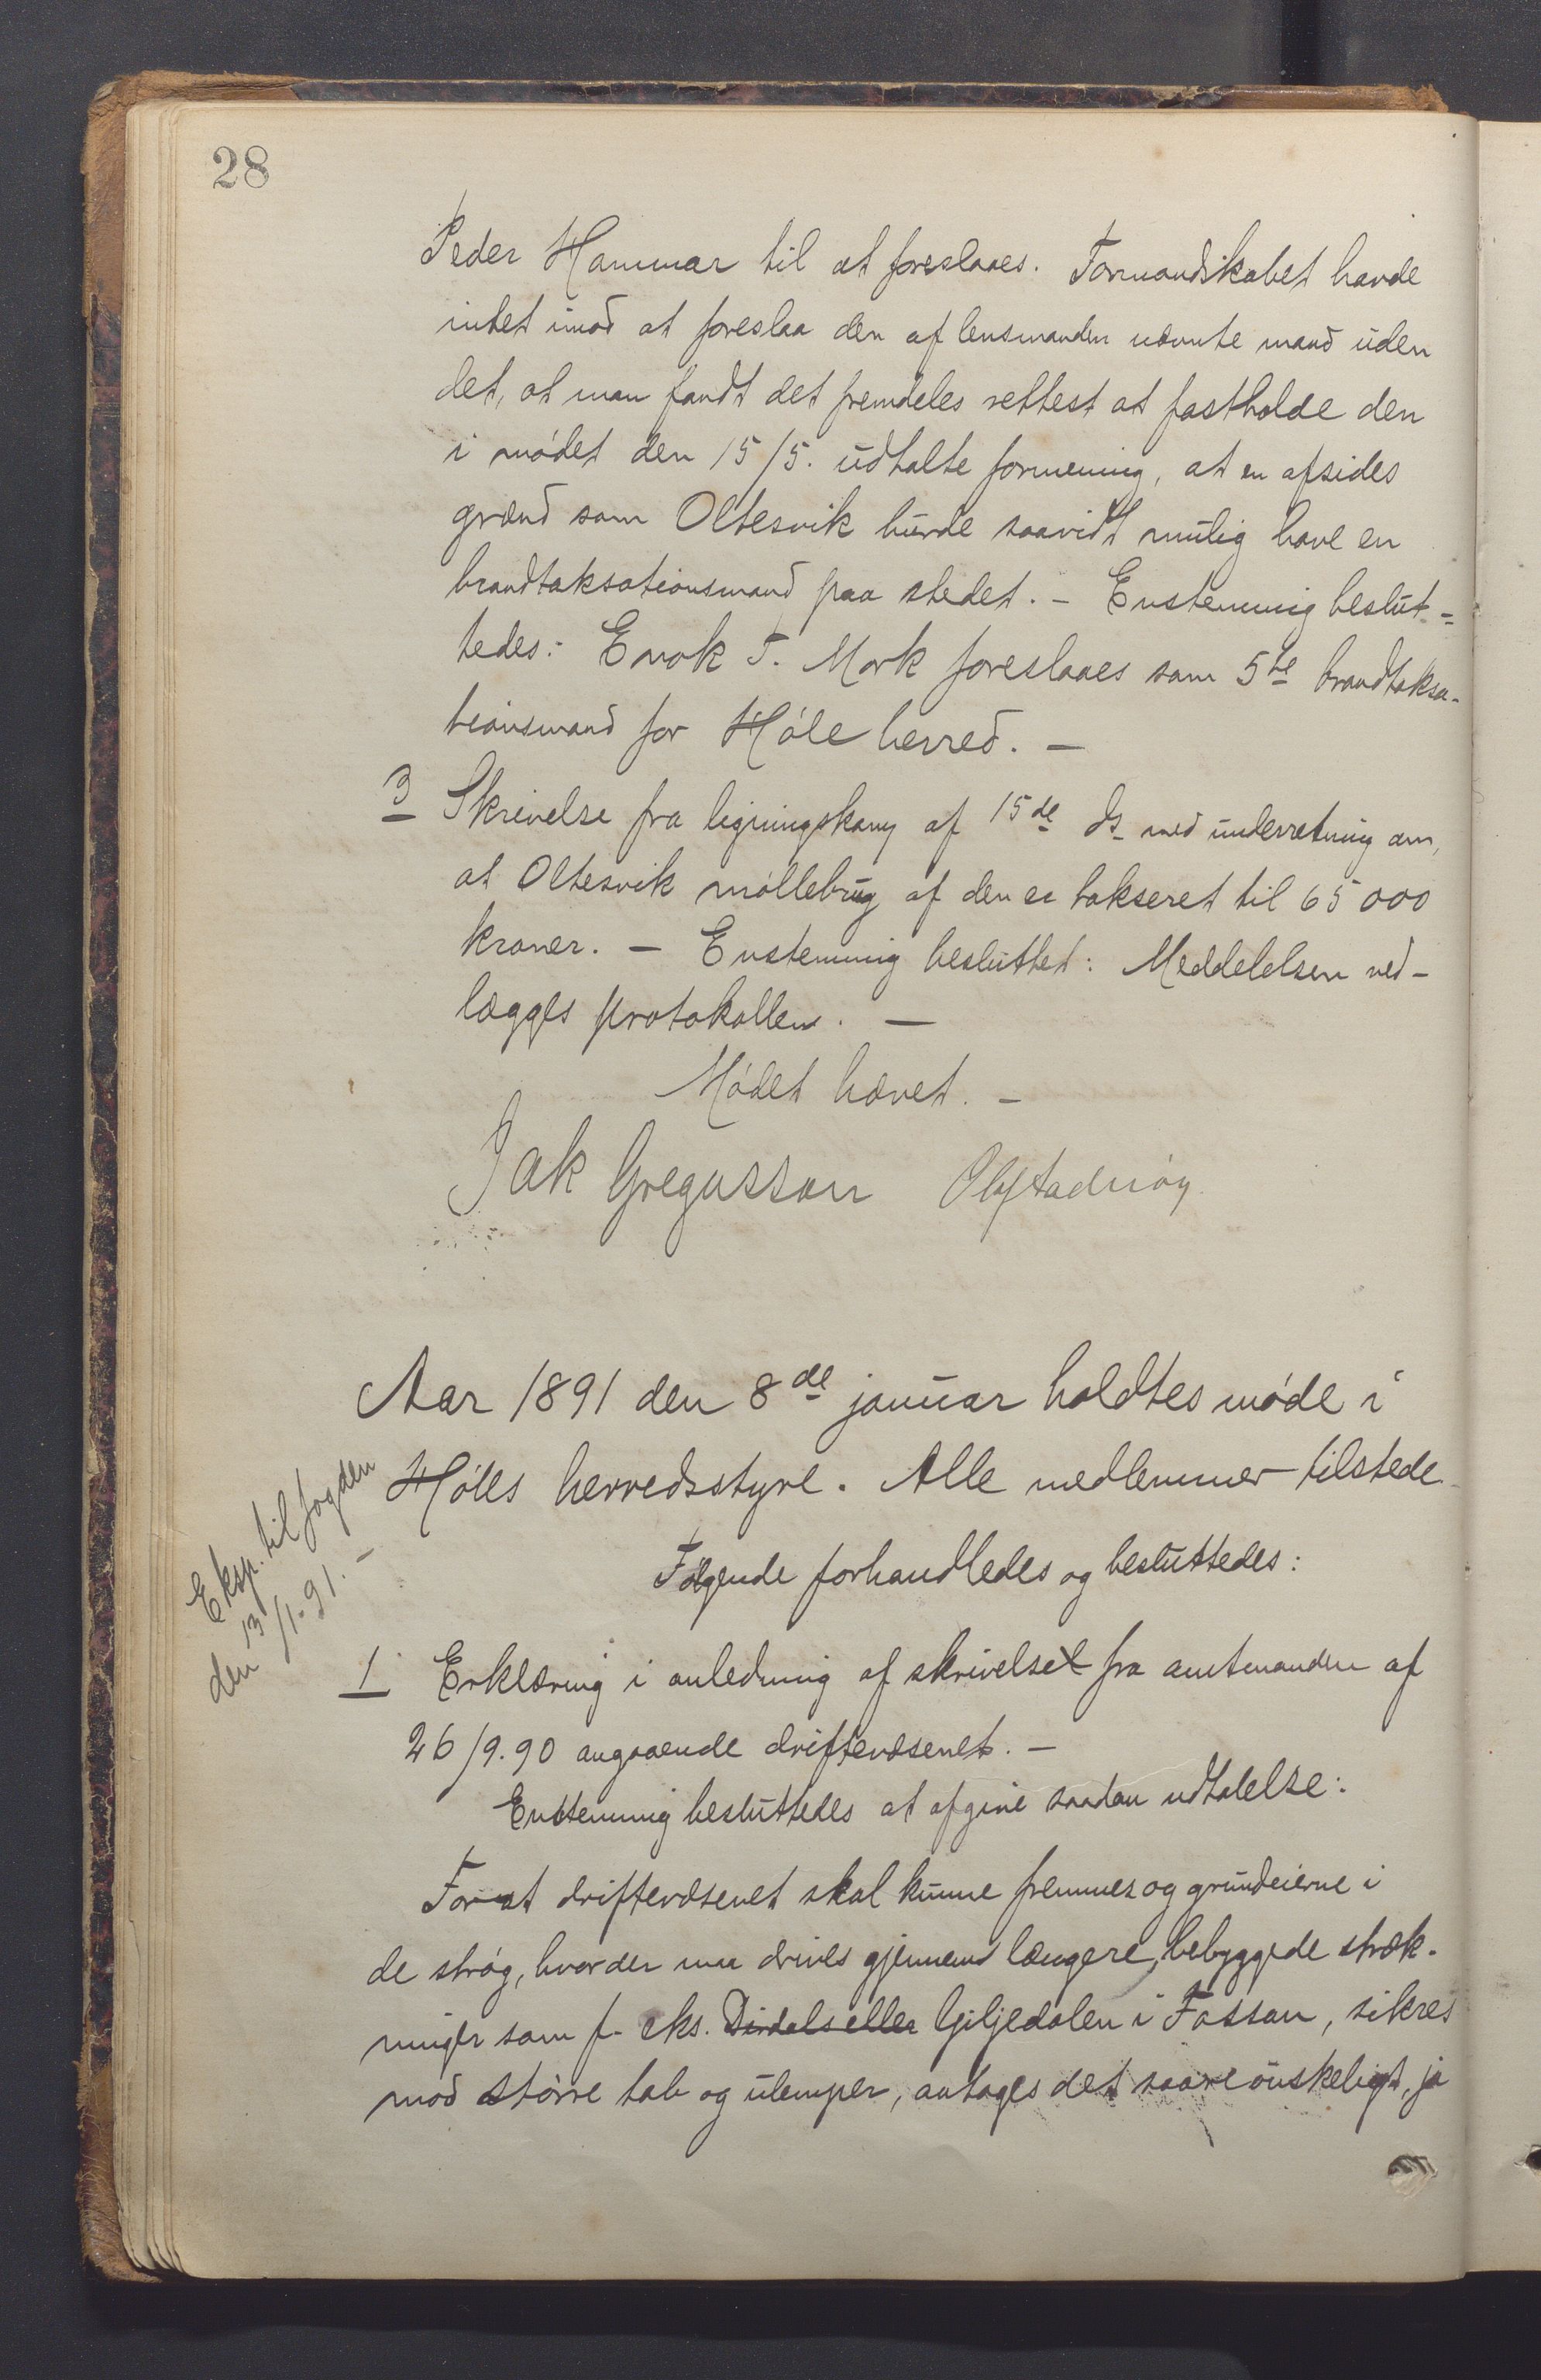 28
Peder Hammar til at foreslaaes. Formandskabet havde
intet imod at foreslaa den af lensmanden nævnte mand uden
det, at man fandt det fremdeles rettest at fastholde den
i mødet den 15/5. udtalte formening, at en afsides
grænd som Oltesvik burde saavidt mulig have en
brandtaksationsmand paa stedet. - Enstemmig beslut-
tedes: Enok T. Mork foreslaaes som 5te brandtaksa-
tionsmand for Høle herred. -
3 Skrivelse fra ligningskom af 15de ds med underretning om,
at Oltesvik møllebrug af den er takseret til 65 000
kroner. - Enstemmig besluttet: Meddelelsen ved-
lægges protokollen. -
Mødet hævet. -
Jak Gregusson
Aar 1891 den 8de januar holdtes møde i
Høles herredsstyre. Alle medlemmer tilstede
Følgende forhandledes og besluttedes:
Eksp. til fogden
den 13/1-91. -
1 Erklæring i anledning af skrivelse fra amtmanden af
26/9.90 angaaende driftevæsenet. -
Enstemmig besluttedes at afgive saadan udtalelse:
For at driftevæsenet skal kunne fremmes og grundeierne i
de strøg, hvor der maa drives gjennem længere, bebyggede stræk-
ninger som f. eks. Dirdals eller Giljedalen i Fossan, sikres
mod større tab og ulemper, antages det saare ønskeligt, ja